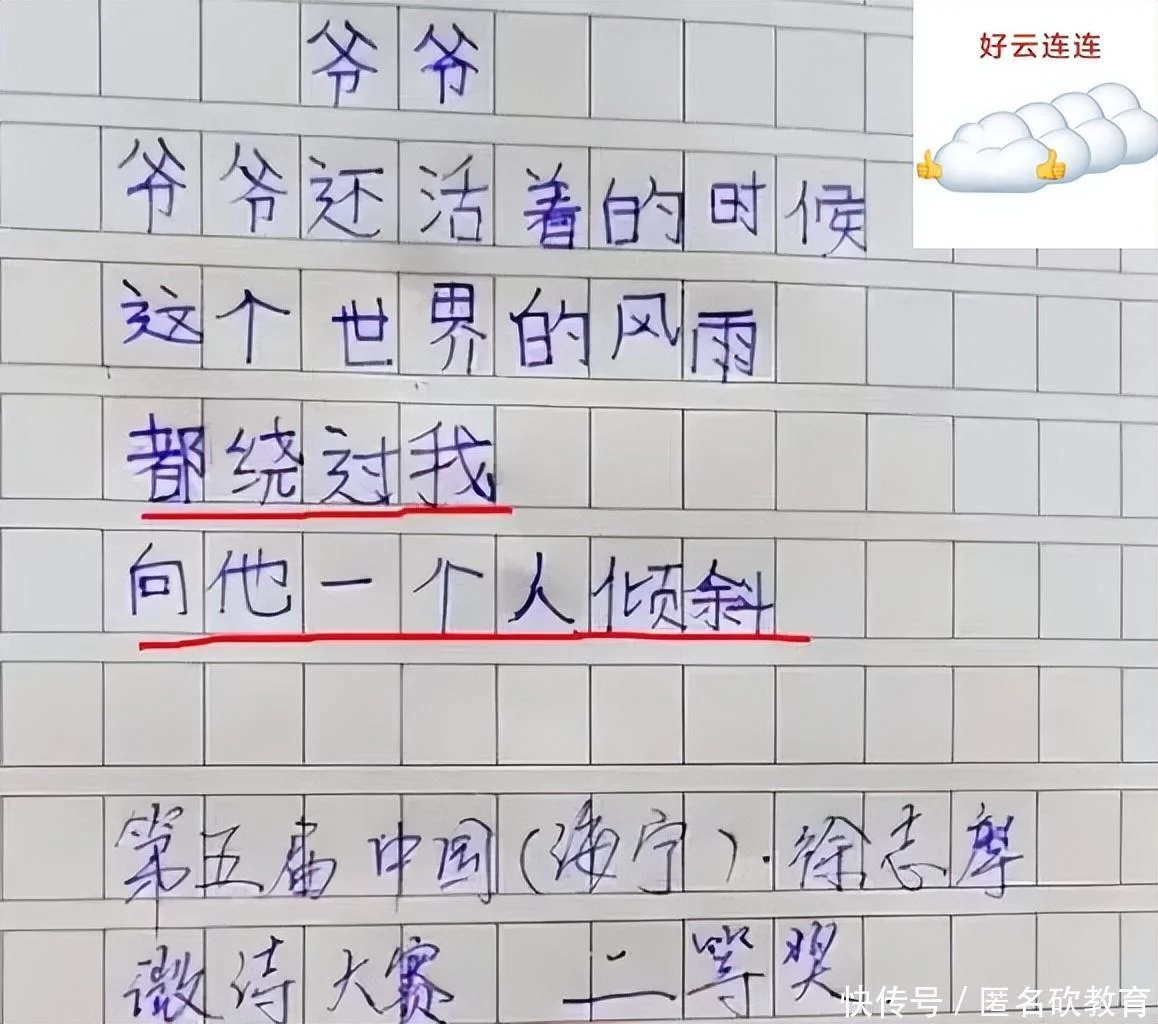 爷爷
好云连连
爷爷还活着的时候
这个世界的风雨
都绕过我
向他一个人倾斜
第五届中国(海宁)·徐志摩
微诗大赛 二等奖
快传号/匿名砍教育